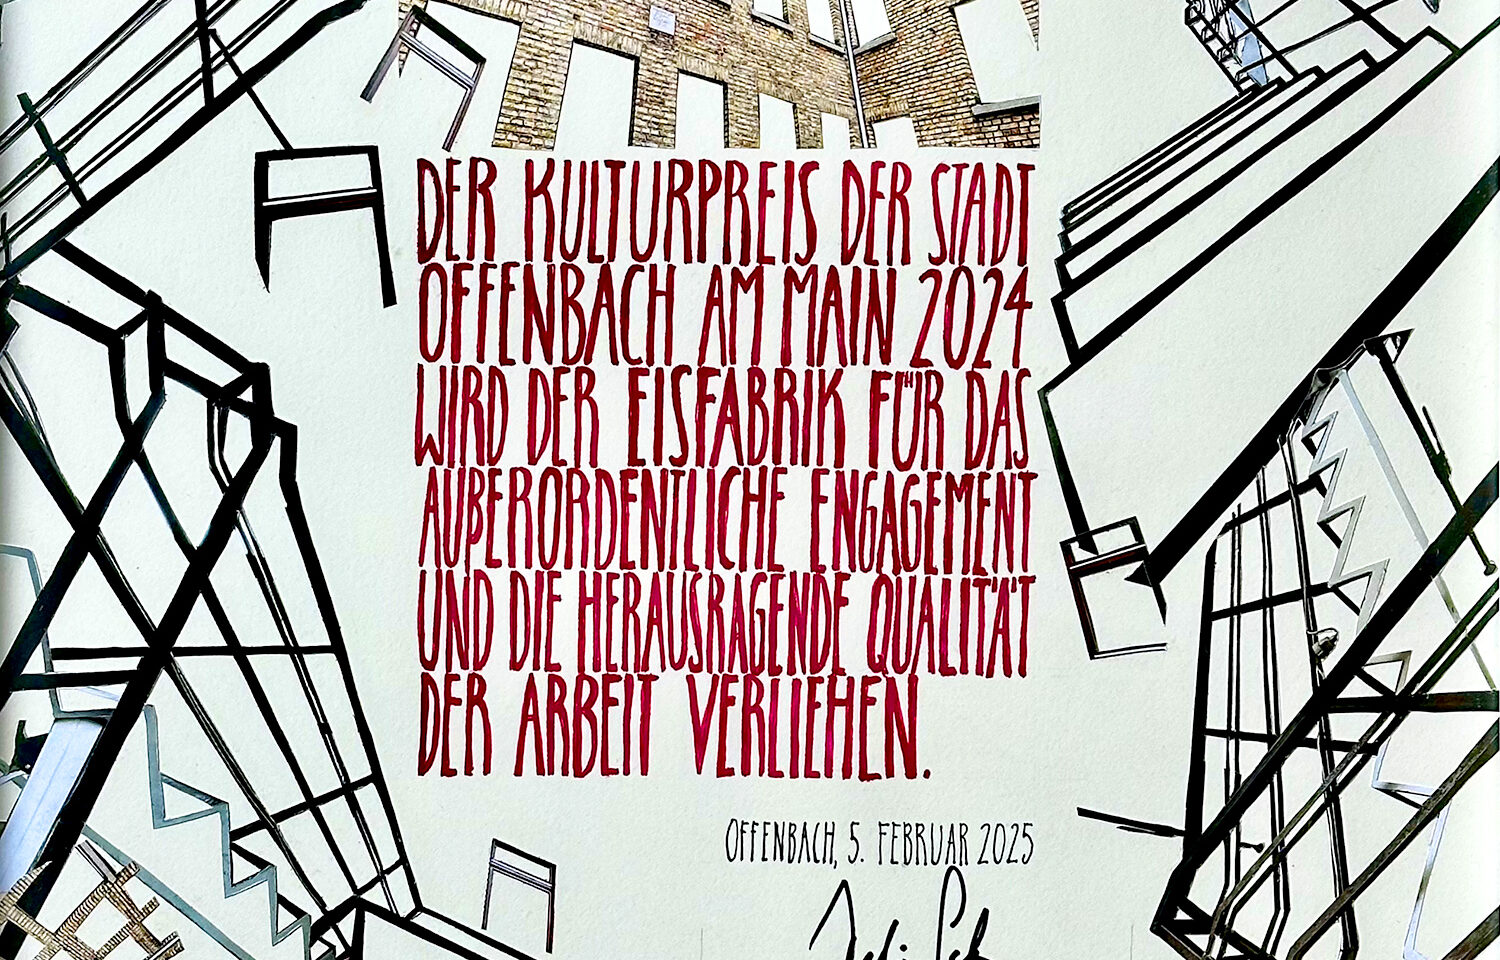 DER KULTURPREIS DER STADT
OFFENBACH AM MAIN 2024
WIRD DER EISFABRIK FÜR DAS
AUßERORDENTLICHE ENGAGEMENT
UND DIE HERAUSRAGENDE QUALITÄT
DER ARBEIT VERLIEHEN.
OFFENBACH, 5. FEBRUAR 2025